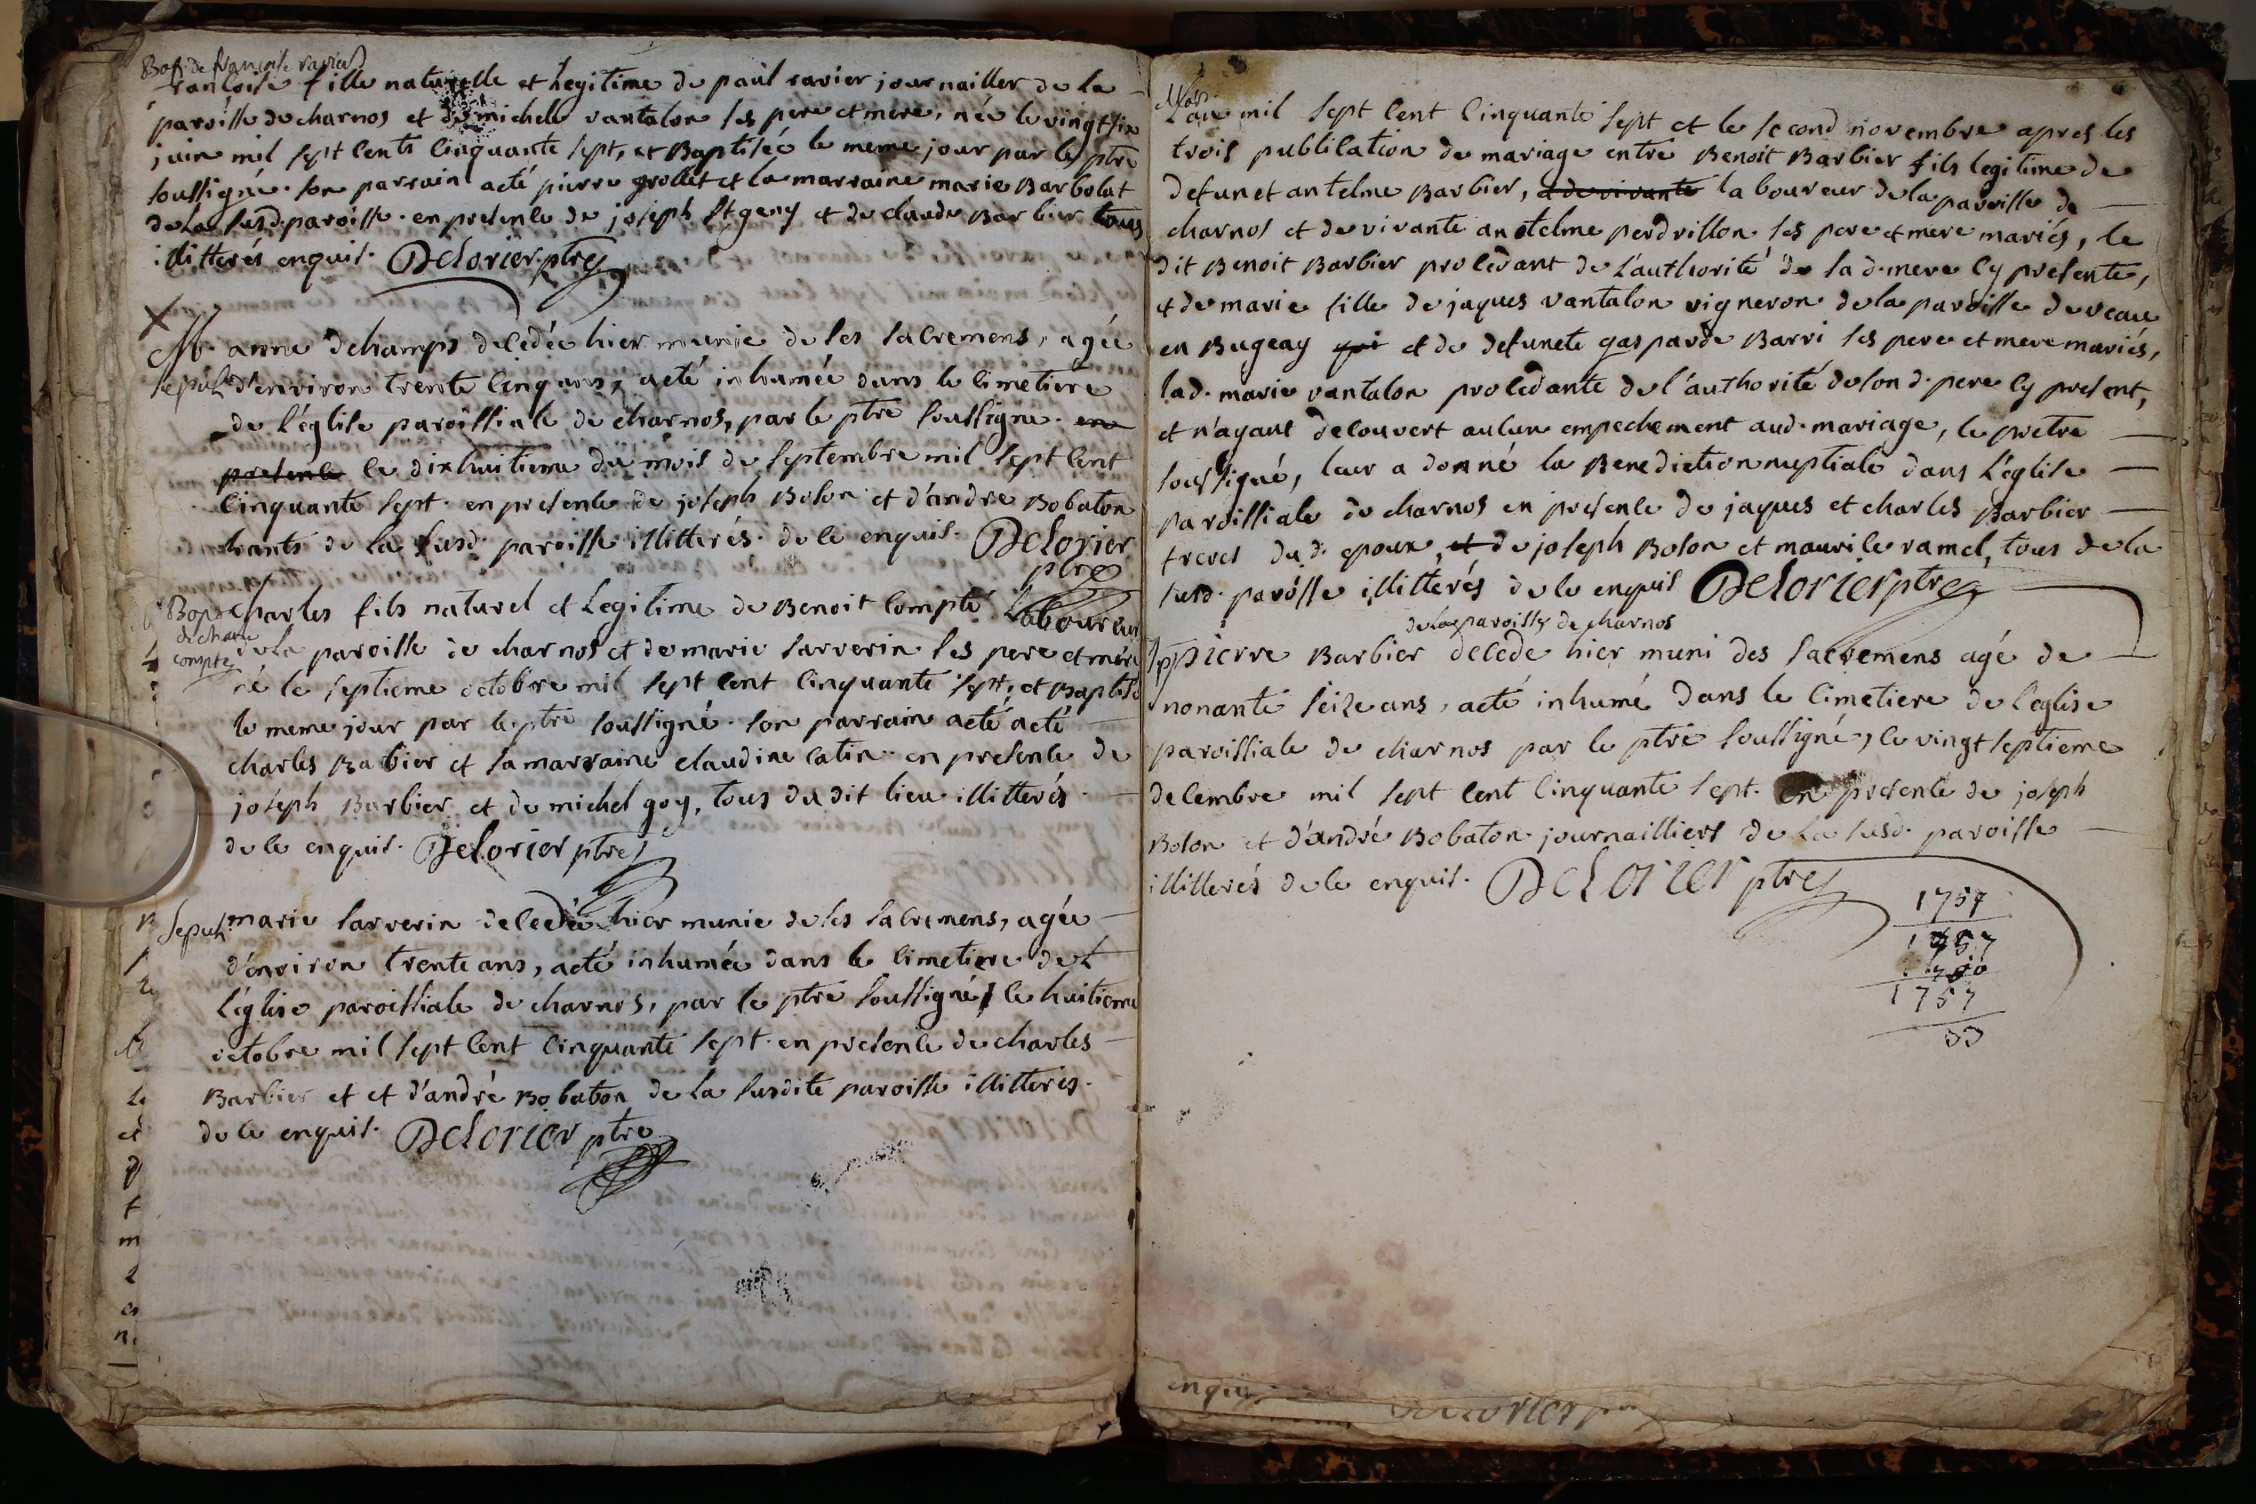 Bap. de françoise ravier
françoise fille naturelle et legitime de paul ravier journailler de la
paroisse de charnos et de michele vantalon ses pere et mere, née le vingt six
juin mil sept cents cinquante sept, et Baptisée le meme jour par le ptre
soussigné. son parrain acté pierre grollet et la marraine marie Barbolat
de la susd. paroisse. en presence de joseph St geny et de claude Barbier tous
illitterés enquis. Delorier ptre
anne dechamps decedée hier munie de ses sacremens, agée
sepult. d'environ trente cinq ans, acté inhumée dans le cimetiere
de l'église paroissiale de charnos, par le ptre soussigné. en
presence le dixhuitieme du mois de septembre mil sept cent
cinquante sept. en presence de joseph Bolon et d'andre Bobaton
de la susd. paroisse illitterés. de ce enquis. Delorier
ptre
Bap. de charles fils naturel et Legitime de Benoit compte Laboureur
de charle
compte
de la paroisse de charnos et de marie sarverin ses pere et mere
né le septieme octobre mil sept cent cinquante sept, et Baptisé
le meme jour par le ptre soussigné. son parrain acté acté
charles Barbier et sa marraine claudine catin. en presence de
joseph Barbier et de michel goy, tous du dit lieu illitterés
de ce enquis. Delorier ptre
sepult. marie sarverin decedée hier munie de ses sacremens, agée
d'environ trente ans, acté inhumée dans le cimetiere de L
L'église paroissiale de charnos, par le ptre soussigné, le huitieme
octobre mil sept cent cinquante sept. en presence de charles
Barbier et et d'andré Bobaton de la susdite paroisse illitterés.
de ce enquis. Delorier ptre
Mar.
L'an mil sept cent cinquante sept et le second novembre apres les
trois publication de mariage entre Benoit Barbier fils legitime de
defunct antelme Barbier, et de vivante laboureur de la paroisse de
charnos et de vivante antelme perdrillon ses pere et mere mariés, le
dit Benoit Barbier procedant de L'authorité de sa d. mere cy presente,
et de marie fille de jaques vantalon vigneron de la paroisse de veau
en Bugeay qui et de defuncte gasparde Barri ses pere et mere mariés,
lad. marie vantalon procedante de l'authorité de son d. pere cy present,
et n'ayant decouvert aucun empechement aud. mariage, le pretre
soussigné, leur a donné la Benediction nuptiale dans L'église
paroissiale de charnos en presence de jaques et charles Barbier
freres dud. epoux, et de joseph Bolon et maurile ramel, tous de la
susd. paroisse illitterés de ce enquis Delorier ptre
de la paroisse de charnos
pierre Barbier decede hier muni des sacremens agé de
nonante seize ans, acté inhumé dans le cimetiere de L'eglise
paroissiale de charnos par le ptre soussigné, le vingt septieme
decembre mil sept cent cinquante sept. en presence de joseph
Bolon et d'andré Bobaton journailliers de la susd. paroisse
illitterés de ce enquis. Delorier ptre
1757
1757
1700
1757
enquis